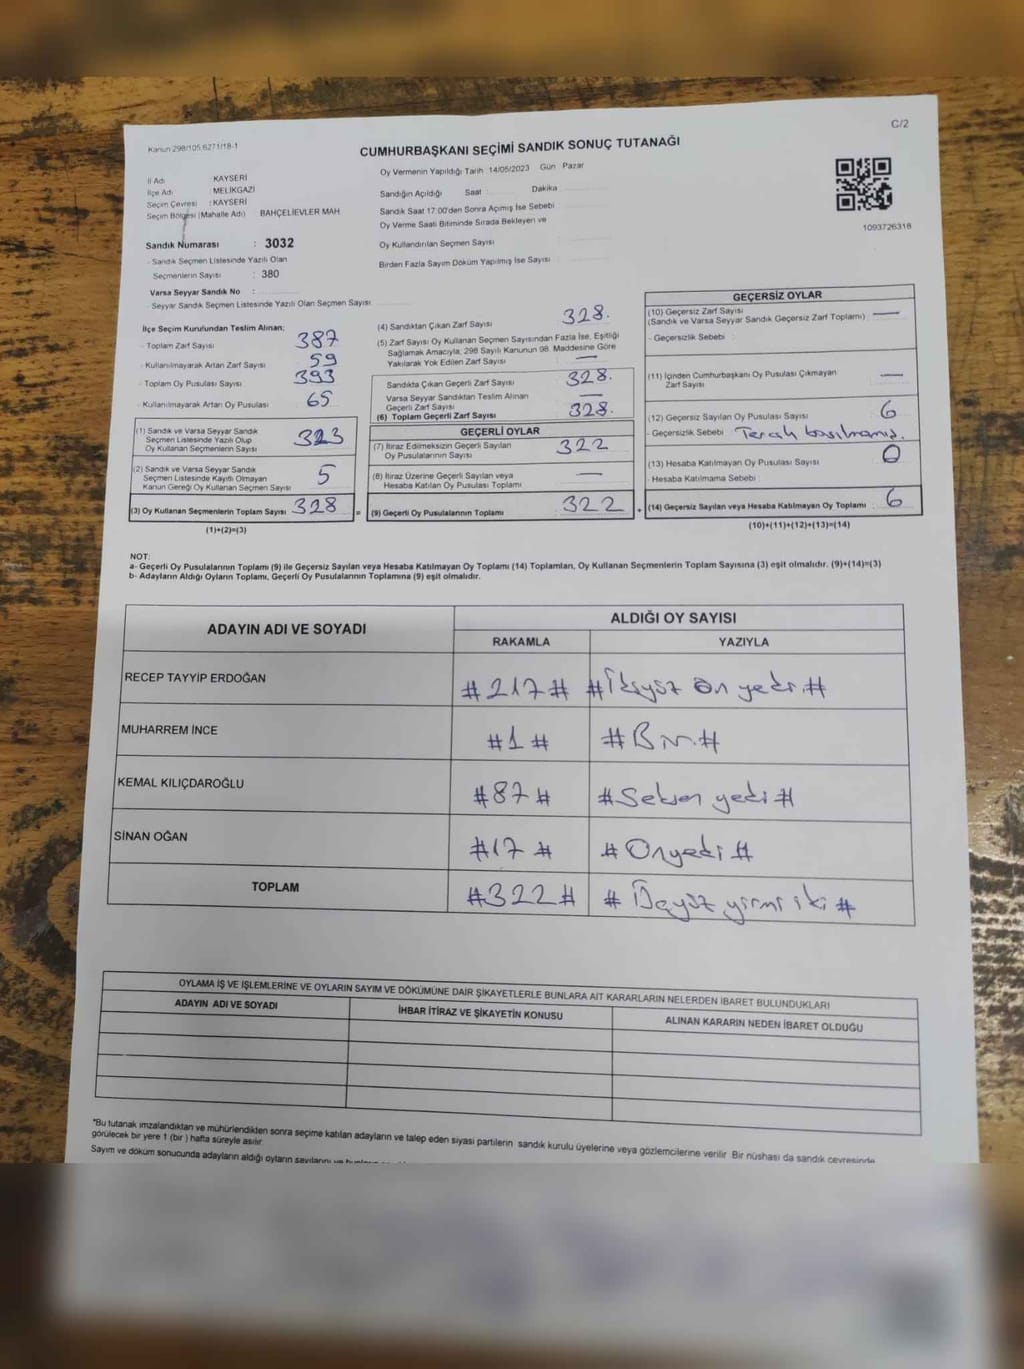 C/2
Kanun 298/105.6271/18-1
CUMHURBAŞKANI SEÇİMİ SANDIK SONUÇ TUTANAĞI
Oy Vermenin Yapıldığı Tarih :14/05/2023 Gün : Pazar
İl Adı KAYSERİ
İlçe Adı MELİKGAZİ
Seçim Çevresi : KAYSERİ
Seçim Bölgesi (Mahalle Adı) BAHÇELİEVLER MAH
Sandık Numarası : 3032
- Sandık Seçmen Listesinde Yazılı Olan
Seçmenlerin Sayısı : 380
Varsa Seyyar Sandık No :
- Seyyar Sandık Seçmen Listesinde Yazılı Olan Seçmen Sayısı:
Sandığın Açıldığı Saat : Dakika
Sandık Saat 17:00'den Sonra Açımış İse Sebebi
Oy Verme Saati Bitiminde Sırada Bekleyen ve
Oy Kullandırılan Seçmen Sayısı
Birden Fazla Sayım Döküm Yapılmış İse Sayısı :
1093726318
İlçe Seçim Kurulundan Teslim Alınan;
- Toplam Zarf Sayısı 387
- Kullanılmayarak Artan Zarf Sayısı 59
- Toplam Oy Pusulası Sayısı 393
- Kullanılmayarak Artan Oy Pusulası 65
(1) Sandık ve Varsa Seyyar Sandık
Seçmen Listesinde Yazılı Olup
Oy Kullanan Seçmenlerin Sayısı 323
(2) Sandık ve Varsa Seyyar Sandık
Seçmen Listesinde Kayıtlı Olmayan
Kanun Gereği Oy Kullanan Seçmen Sayısı 5
(3) Oy Kullanan Seçmenlerin Toplam Sayısı 328 =
(1)+(2)=(3)
(4) Sandıktan Çıkan Zarf Sayısı 328.
(5) Zarf Sayısı Oy Kullanan Seçmen Sayısından Fazla İse, Eşitliği
Sağlamak Amacıyla; 298 Sayılı Kanunun 98. Maddesine Göre
Yakılarak Yok Edilen Zarf Sayısı —
Sandıkta Çıkan Geçerli Zarf Sayısı 328.
Varsa Seyyar Sandıktan Teslim Alınan
Geçerli Zarf Sayısı —
(6) Toplam Geçerli Zarf Sayısı 328.
GEÇERLİ OYLAR
(7) İtiraz Edilmeksizin Geçerli Sayılan
Oy Pusulalarının Sayısı 322
(8) İtiraz Üzerine Geçerli Sayılan veya
Hesaba Katılan Oy Pusulası Toplamı —
(9) Geçerli Oy Pusulalarının Toplamı 322 +
GEÇERSİZ OYLAR
(10) Geçersiz Zarf Sayısı
(Sandık ve Varsa Seyyar Sandık Geçersiz Zarf Toplamı) —
- Geçersizlik Sebebi :
(11) İçinden Cumhurbaşkanı Oy Pusulası Çıkmayan
Zarf Sayısı —
(12) Geçersiz Sayılan Oy Pusulası Sayısı 6
- Geçersizlik Sebebi : Tercih basılmamış.
(13) Hesaba Katılmayan Oy Pusulası Sayısı 0
- Hesaba Katılmama Sebebi :
(14) Geçersiz Sayılan veya Hesaba Katılmayan Oy Toplamı 6
(10)+(11)+(12)+(13)=(14)
NOT:
a- Geçerli Oy Pusulalarının Toplamı (9) ile Geçersiz Sayılan veya Hesaba Katılmayan Oy Toplamı (14) Toplamları, Oy Kullanan Seçmenlerin Toplam Sayısına (3) eşit olmalıdır. (9)+(14)=(3)
b- Adayların Aldığı Oyların Toplamı, Geçerli Oy Pusulalarının Toplamına (9) eşit olmalıdır.
ADAYIN ADI VE SOYADI ALDIĞI OY SAYISI
RAKAMLA YAZIYLA
RECEP TAYYİP ERDOĞAN #217# #İkiyüz on yedi.#
MUHARREM İNCE #1# #Bir.#
KEMAL KILIÇDAROĞLU #87# #Seksen yedi#
SİNAN OĞAN #17# #Onyedi#
TOPLAM #322# #Üçyüz yirmi iki#
OYLAMA İŞ VE İŞLEMLERİNE VE OYLARIN SAYIM VE DÖKÜMÜNE DAİR ŞİKAYETLERLE BUNLARA AİT KARARLARIN NELERDEN İBARET BULUNDUKLARI
ADAYIN ADI VE SOYADI İHBAR İTİRAZ VE ŞİKAYETİN KONUSU ALINAN KARARIN NEDEN İBARET OLDUĞU
*Bu tutanak imzalandıktan ve mühürlendikten sonra seçime katılan adayların ve talep eden siyasi partilerin sandık kurulu üyelerine veya gözlemcilerine verilir. Bir nüshası da sandık çevresinde
görülecek bir yere 1 (bir ) hafta süreyle asılır.
Sayım ve döküm sonucunda adayların aldığı oyların sayılarını